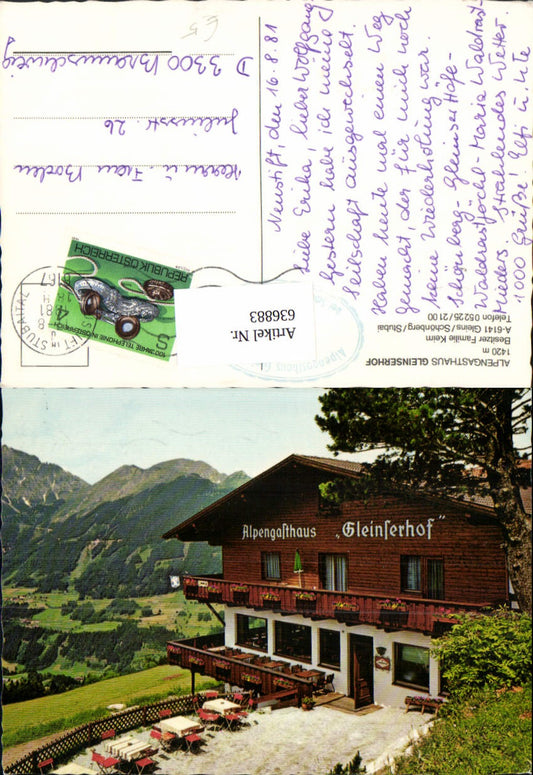 Neustift, den 16.8.81
Liebe Erika, lieber Wolfgang
gestern habe ich meine
seitschaft ausgewechselt.
Haben heute mal einen Weg
gemacht, der für mich noch
keine Wiederholung war.
Schönberg - Gleinser Höfe -
Waldrastjöchl - Maria Waldrast -
Mieders. Strahlendes Wetter.
1000 Grüße! Elfi u. Ute
Herrn u. Frau Boden
Juliusstr. 26
D 3300 Braunschweig
REPUBLIK ÖSTERREICH
S 4
100 JAHRE TELEPHONIE IN ÖSTERREICH
6167
STUBAITAL
Artikel Nr.
636883
ALPENGASTHAUS GLEINSERHOF
1420 m
Besitzer Familie Keim
A-6141 Gleins/Schönberg/Stubai
Telefon 05225/2100
Alpengasthaus „Gleinserhof“